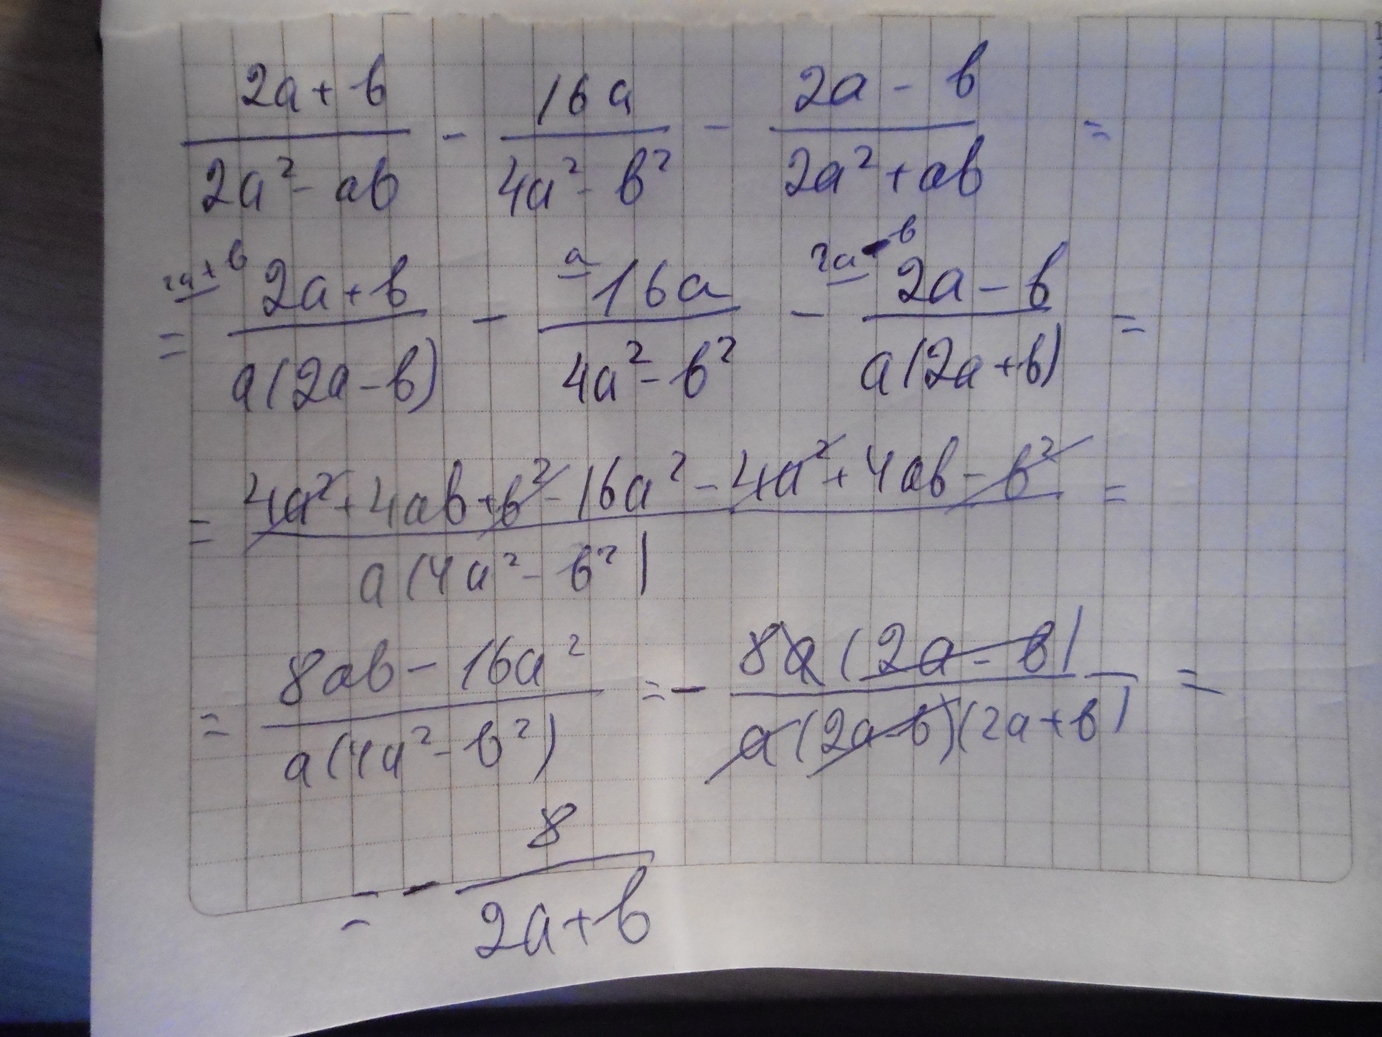 (2a + b)/(2a² - ab) - 16a/(4a² - b²) - (2a - b)/(2a² + ab) =
= (2a + b)/(a(2a - b)) ^(2a + b) - 16a/(4a² - b²) ^(a) - (2a - b)/(a(2a + b)) ^(2a - b) =
= (4a² + 4ab + b² - 16a² - 4a² + 4ab - b²)/(a(4a² - b²)) =
= (8ab - 16a²)/(a(4a² - b²)) = - (8a(2a - b))/(a(2a - b)(2a + b)) =
= - 8/(2a + b)